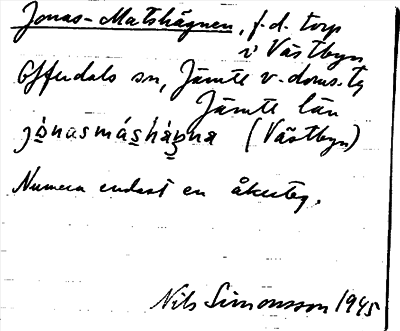 Jonas-Matshägnen, f.d. torp
i Västbyn
Offerdals sn, Jämte v. doms.tg
Jämte län
jònasmáshàgna (Västbyn)
Numera endast en åkerteg.
Nils Simonsson 1945